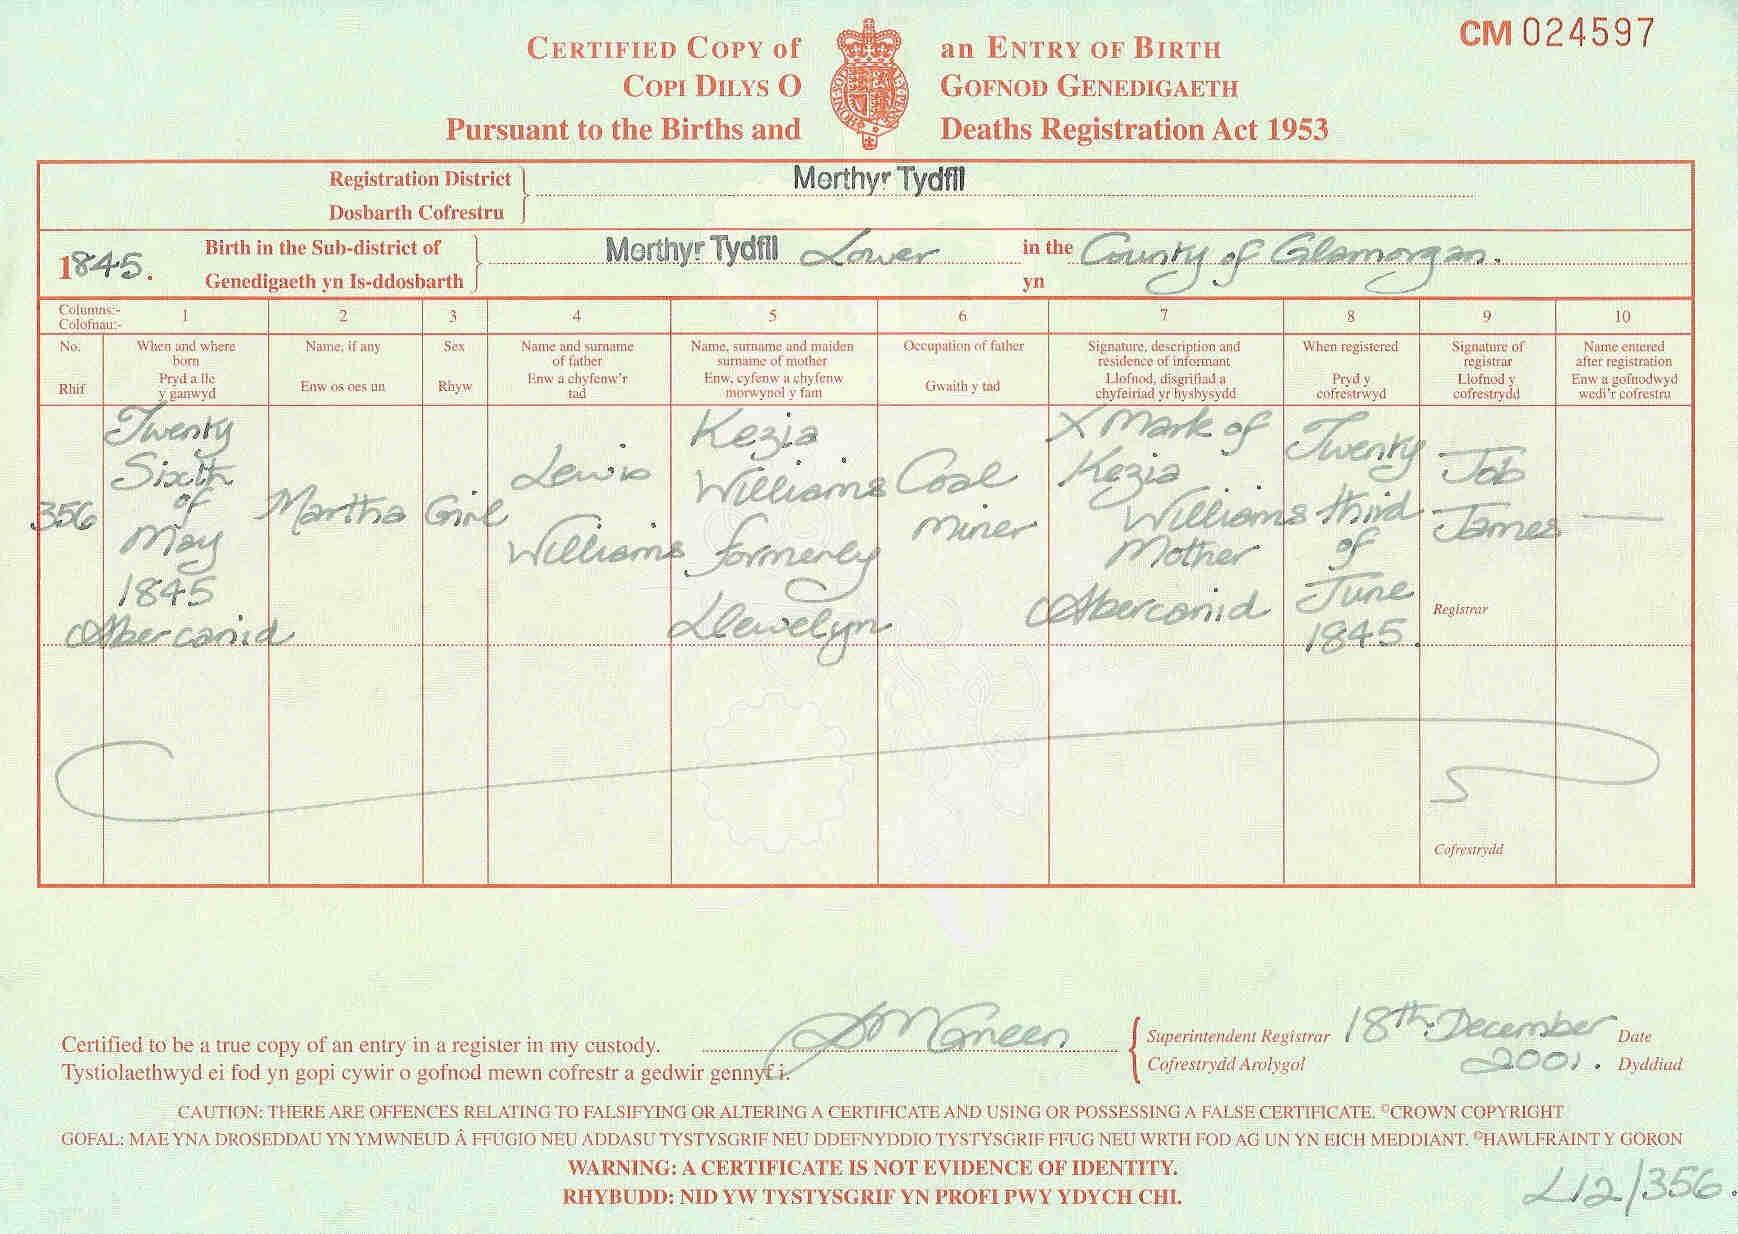 CERTIFIED COPY OF an ENTRY OF BIRTH
CM 024597
COPI DILYS O GOFNOD GENEDIGAETH
Pursuant to the Births and Deaths Registration Act 1953
Registration District Merthyr Tydfil
Dosbarth Cofrestru
1845. Birth in the Sub-district of Merthyr Tydfil Lower in the County of Glamorgan.
Genedigaeth yn Is-ddosbarth yn
Columns:- 1 2 3 4 5 6 7 8 9 10
Colofnau:-
No.
Rhif
When and where
born
Pryd a lle
y ganwyd
Name, if any
Enw os oes un
Sex
Rhyw
Name and surname
of father
Enw a chyfenw'r
tad
Name, surname and maiden
surname of mother
Enw, cyfenw a chyfenw
morwynol y fam
Occupation of father
Gwaith y tad
Signature, description and
residence of informant
Llofnod, disgrifiad a
chyfeiriad yr hysbysydd
When registered
Pryd y
cofrestrwyd
Signature of
registrar
Llofnod y
cofrestrydd
Name entered
after registration
Enw a gofnodwyd
wedi'r cofrestru
356
Twenty
Sixth
of
May
1845
Abercanid
Martha
Girl
Lewis
Williams
Kezia
Williams
formerly
Llewelyn
Coal
Miner
X Mark of
Kezia
Williams
Mother
Abercanid
Twenty
third
of
June
1845.
Job
James
Registrar
Cofrestrydd
—
Certified to be a true copy of an entry in a register in my custody.
Tystiolaethwyd ei fod yn gopi cywir o gofnod mewn cofrestr a gedwir gennyf i.
Superintendent Registrar
Cofrestrydd Arolygol
18th December
2001.
Date
Dyddiad
CAUTION: THERE ARE OFFENCES RELATING TO FALSIFYING OR ALTERING A CERTIFICATE AND USING OR POSSESSING A FALSE CERTIFICATE. ©CROWN COPYRIGHT
GOFAL: MAE YNA DROSEDDAU YN YMWNEUD Â FFUGIO NEU ADDASU TYSTYSGRIF NEU DDEFNYDDIO TYSTYSGRIF FFUG NEU WRTH FOD AG UN YN EICH MEDDIANT. ©HAWLFRAINT Y GORON
WARNING: A CERTIFICATE IS NOT EVIDENCE OF IDENTITY.
RHYBUDD: NID YW TYSTYSGRIF YN PROFI PWY YDYCH CHI.
L12/356.